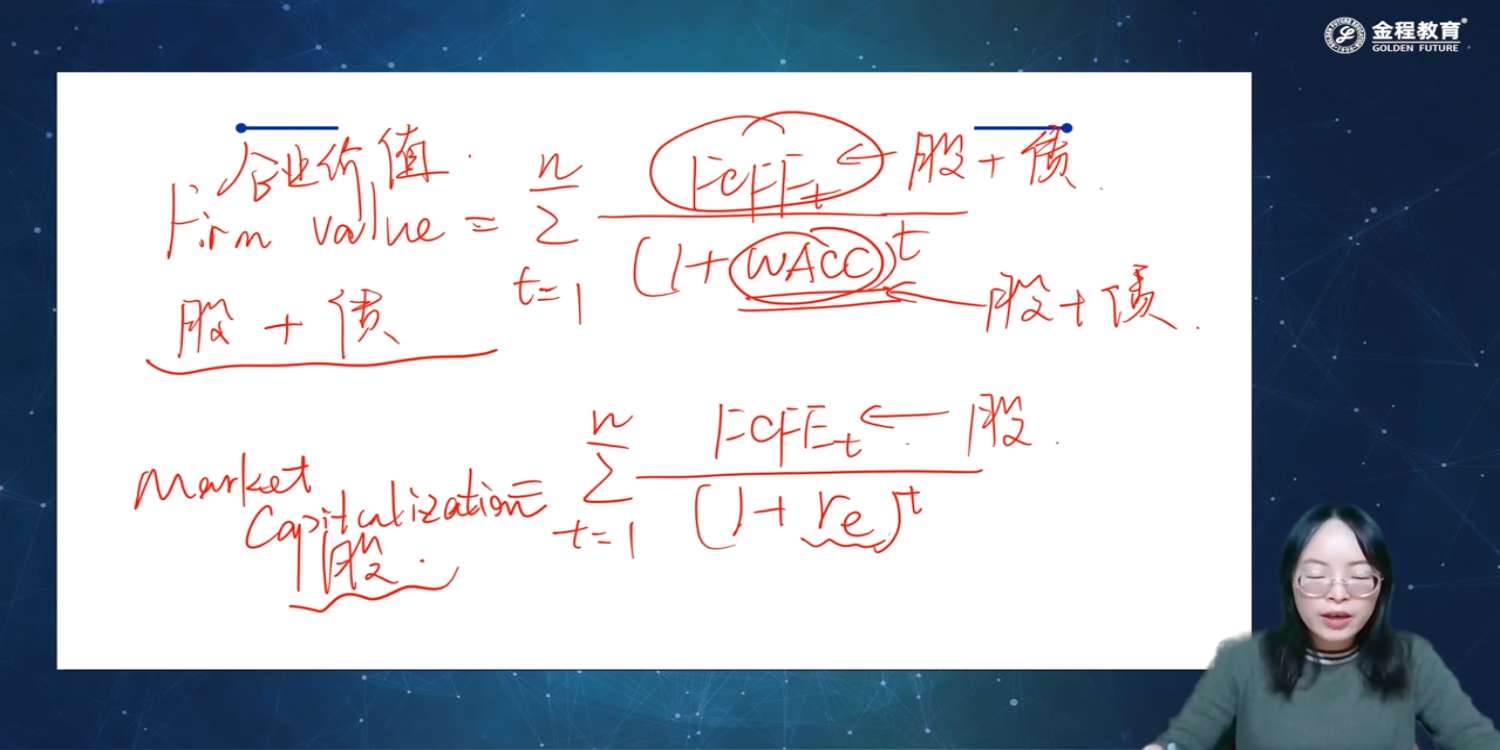 金程教育
GOLDEN FUTURE
企业价值.
Firm value = n Σ t=1 FCFF_t / (1+WACC)^t ← 股+债.
股 + 债
← 股+债.
Market Capitalization = n Σ t=1 FCFE_t / (1+re)^t ← 股.
股.